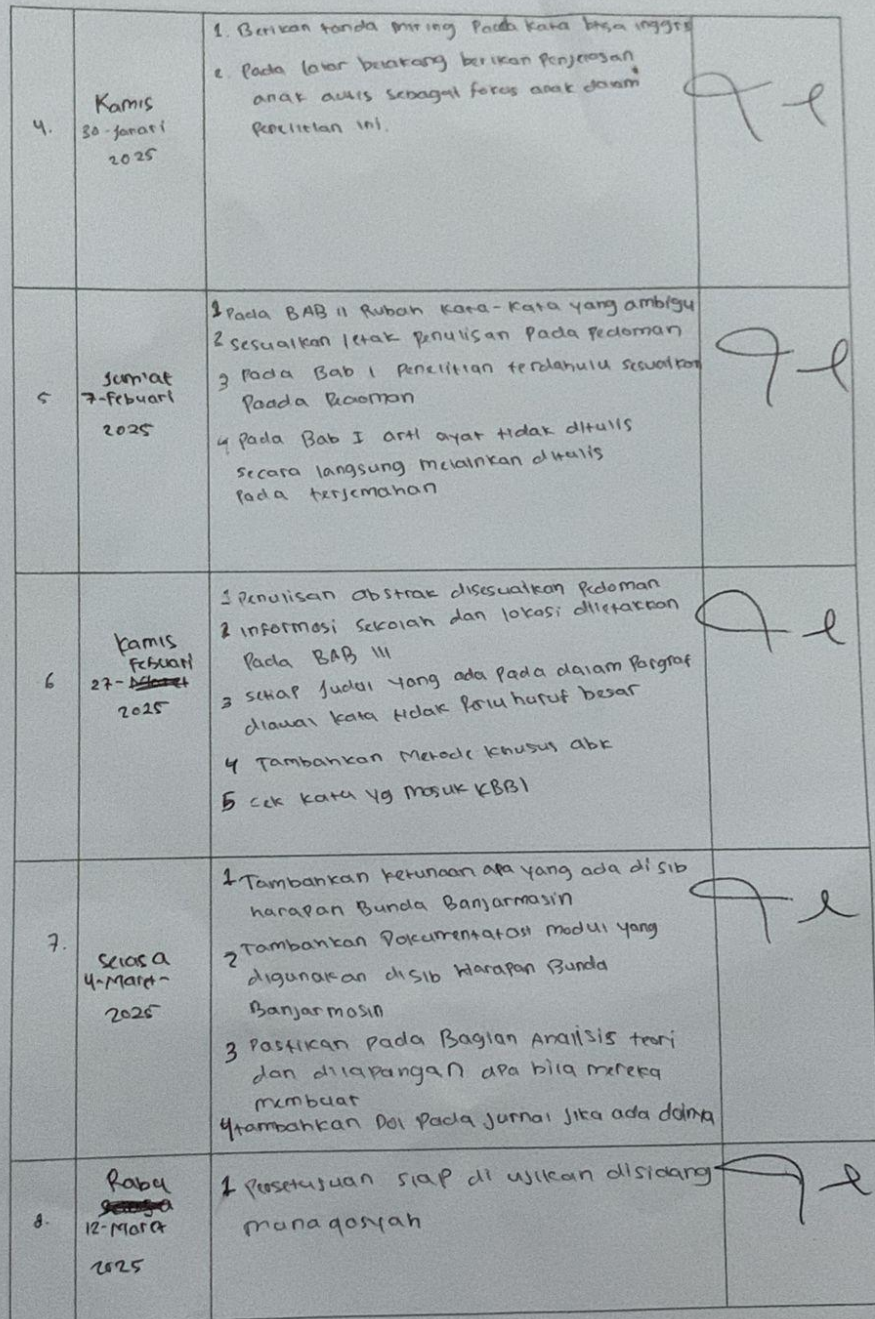 4.
Kamis
30-Janari
2025
1. Berikan tanda miring Pada kata bhsa inggris
2. Pada latar belakang berikan Penjelasan
anak autis sebagai fokus anak dalam
Penelitian ini.
5
Jum'at
7-Febuari
2025
1 Pada BAB II Rubah kata-kata yang ambigu
2 sesuaikan letak Penulisan Pada Pedoman
3 Pada Bab I Penelitian terdahulu sesuaikan
Paada Pedoman
4 Pada Bab I arti ayat tidak ditulis
secara langsung melainkan ditulis
Pada terjemahan
6
Kamis
Febuari
27-
2025
1 Penulisan abstrak disesuaikan Pedoman
2 informasi sekolah dan lokasi diletakkan
Pada BAB III
3 setiap Judul yang ada pada dalam Pargraf
diawal kata tidak Perlu huruf besar
4 Tambahkan Metode khusus abk
5 cek kata yg masuk KBBI
7.
Selasa
4-Maret-
2025
1 Tambahkan ketunaan apa yang ada di slb
harapan Bunda Banjarmasin
2 Tambahkan Dokumentatasi modul yang
digunakan di slb Harapan Bunda
Banjarmasin
3 Pastikan Pada Bagian Analisis teori
dan dilapangan apa bila mereka
membuat
4 tambahkan Doi Pada Jurnal Jika ada doinya
8.
Rabu
12-Maret
2025
1 Persetujuan siap di ujikan disidang
munaqosyah